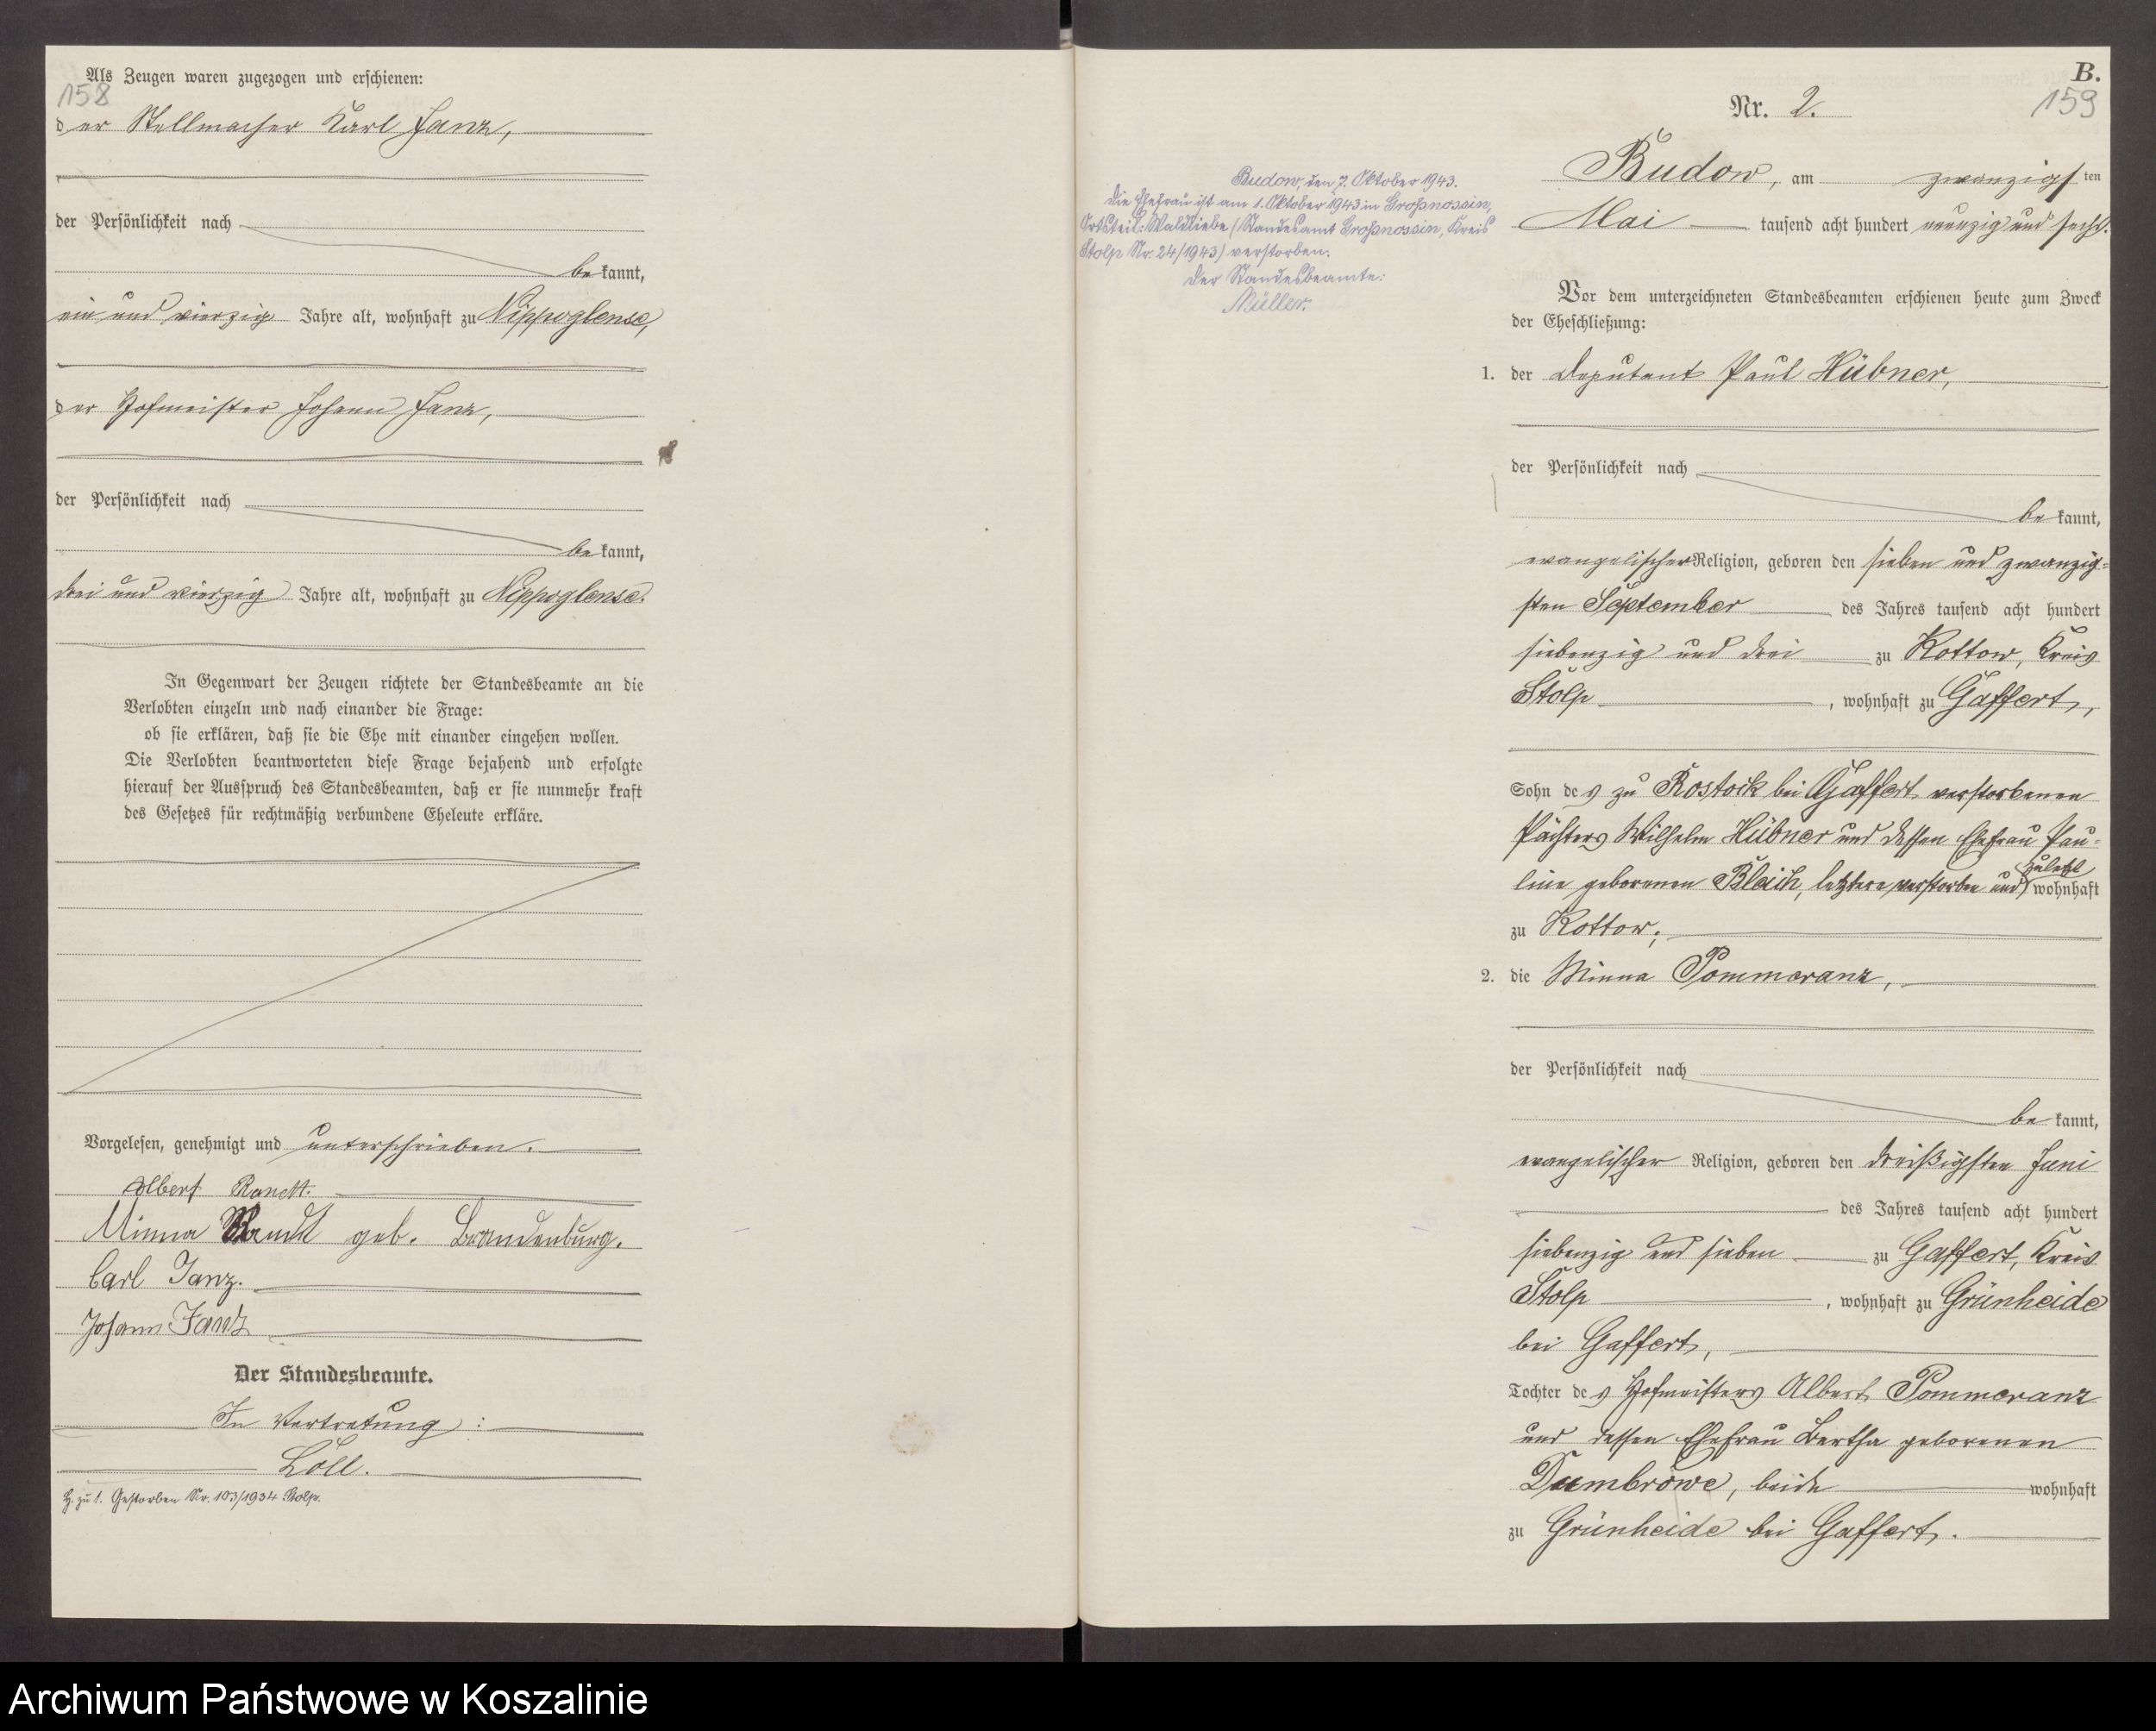 Als Zeugen waren zugezogen und erschienen:
158
der Stellmacher Karl Janz,
der Persönlichkeit nach
bekannt,
ein und vierzig Jahre alt, wohnhaft zu Nippoglense,
der Hofmeister Johann Janz,
der Persönlichkeit nach
bekannt,
drei und vierzig Jahre alt, wohnhaft zu Nippoglense.
In Gegenwart der Zeugen richtete der Standesbeamte an die
Verlobten einzeln und nach einander die Frage:
ob sie erklären, daß sie die Ehe mit einander eingehen wollen.
Die Verlobten beantworteten diese Frage bejahend und erfolgte
hierauf der Ausspruch des Standesbeamten, daß er sie nunmehr kraft
des Gesetzes für rechtmäßig verbundene Eheleute erkläre.
Vorgelesen, genehmigt und unterschrieben.
Albert
Minna geb. Brandenburg.
Carl Janz.
Johann Janz
Der Standesbeamte.
In Vertretung:
Löll.
H. zu 1. Gestorben Nr. 103/1934 Stolp.
B.
Nr. 2.
159
Budow, am zwanzigsten
Mai tausend acht hundert neunzig und sechs.
Budow, den 7. Oktober 1943.
Die Ehefrau ist am 1. Oktober 1943 in Großnossin,
Ortsteil: Waldliebe (Standesamt Großnossin, Kreis
Stolp Nr. 24/1943) verstorben.
Der Standesbeamte:
Müller.
Vor dem unterzeichneten Standesbeamten erschienen heute zum Zweck
der Eheschließung:
1. der Deputant Paul Hübner,
der Persönlichkeit nach
bekannt,
evangelischer Religion, geboren den sieben und zwanzig-
sten September des Jahres tausend acht hundert
siebenzig und drei zu Kottow, Kreis
Stolp, wohnhaft zu Gaffert,
Sohn des zu Rostock bei Gaffert verstorbenen
Pächters Wilhelm Hübner und dessen Ehefrau Pau-
line geborenen Bleich, letztere verstorben und zuletzt wohnhaft
zu Kottow;
2. die Minna Pommeranz,
der Persönlichkeit nach
bekannt,
evangelischer Religion, geboren den dreißigsten Juni
des Jahres tausend acht hundert
siebenzig und sieben zu Gaffert, Kreis
Stolp, wohnhaft zu Grünheide
bei Gaffert,
Tochter des Hofmeisters Albert Pommeranz
und dessen Ehefrau Bertha geborenen
Dumbrowe, beide wohnhaft
zu Grünheide bei Gaffert.
Archiwum Państwowe w Koszalinie